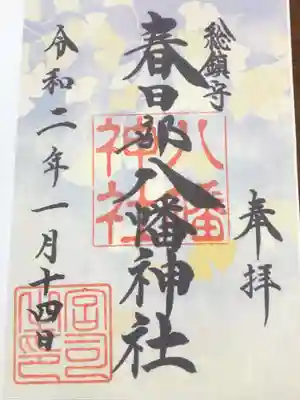 奉拝
総鎮守
春日部八幡神社
八幡神社
令和二年一月十四日
宮司之印